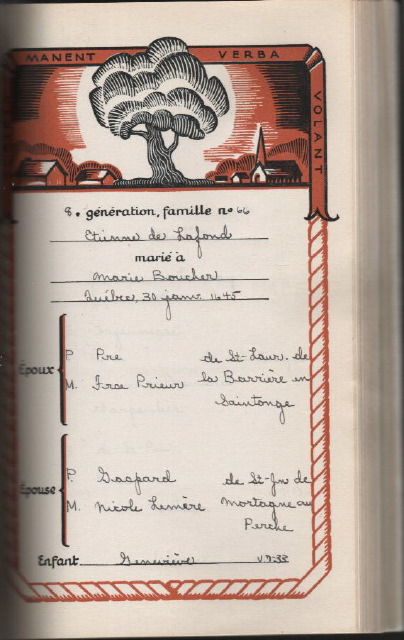 MANENT VERBA
VOLANT
8. génération, famille no 66
Etienne de Lafond
marié à
Marie Boucher
Québec, 30 janv. 1645
Époux
P. Pre de St-Laur. de
M. Frce Prieur la Barrière en
Saintonge
Épouse
P. Gaspard de St-Jn de
M. Nicole Lemère Mortagne au
Perche
Enfant Geneviève v 7-33